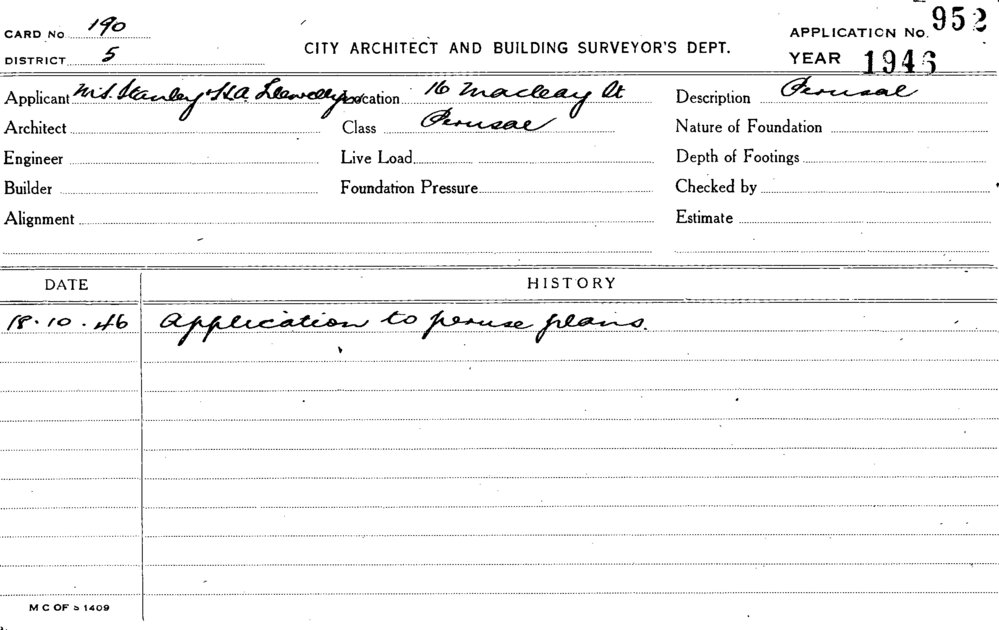 CARD No. 190
DISTRICT 5
CITY ARCHITECT AND BUILDING SURVEYOR'S DEPT.
APPLICATION No. 952
YEAR 1946
Applicant Stanley & H.A. Llewellyn Location 16 Macleay St Description Perusal
Architect Class Perusal Nature of Foundation
Engineer Live Load Depth of Footings
Builder Foundation Pressure Checked by
Alignment Estimate
DATE HISTORY
18.10.46 Application to peruse plans.
M C OF S 1409